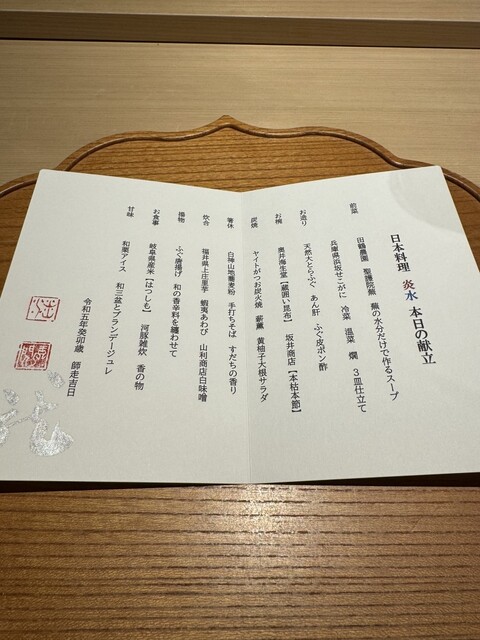 日本料理 炎水 本日の献立
前菜 田鶴農園 聖護院蕪 蕪の水分だけで作るスープ
兵庫県浜坂せこがに 冷菜 温菜 燗 3皿仕立て
お造り 天然大とらふぐ あん肝 ふぐ皮ポン酢
お椀 奥井海生堂【蔵囲い昆布】 坂井商店【本枯本節】
炭焼 ヤイトがつお炭火焼 薪薫 黄柚子大根サラダ
箸休 白神山地蕎麦粉 手打ちそば すだちの香り
炊合 福井県上庄里芋 蝦夷あわび 山利商店白味噌
揚物 ふぐ唐揚げ 和の香辛料を纏わせて
お食事 岐阜県産米【はつしも】 河豚雑炊 香の物
甘味 和栗アイス 和三盆とブランデージュレ
令和五年癸卯歳 師走吉日